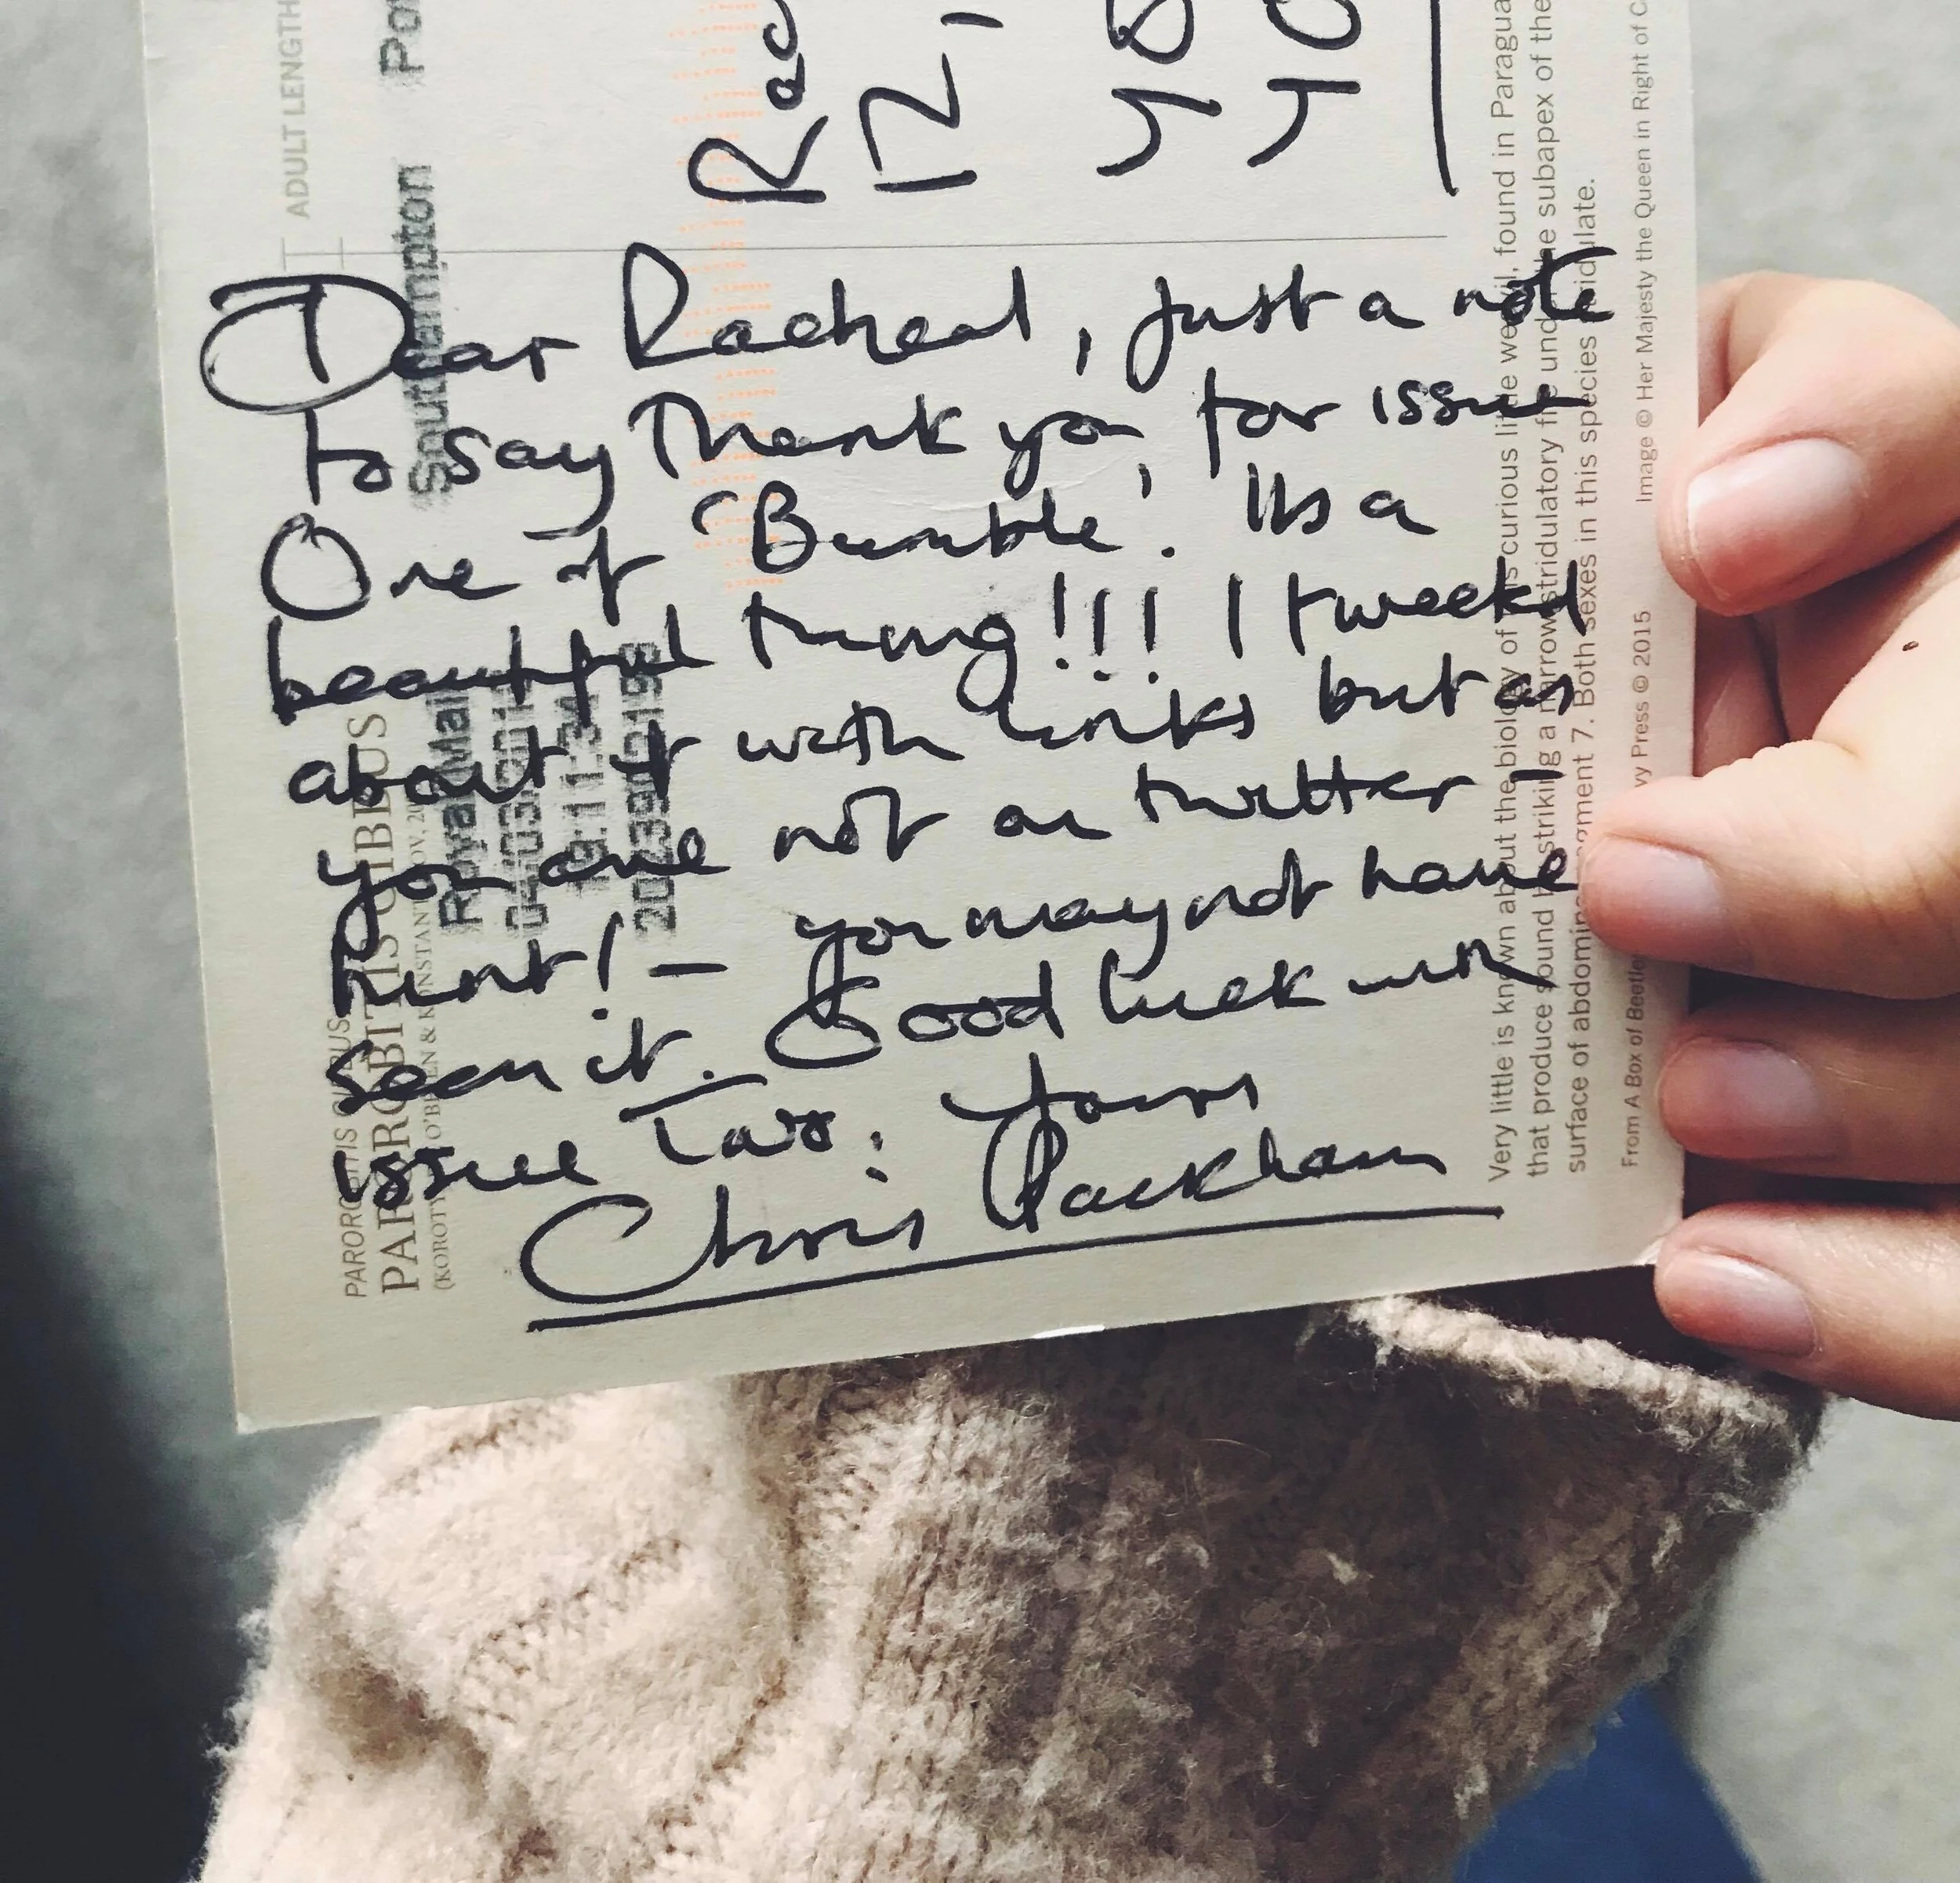 Dear Racheal, Just a note
to say Thank you, for issue
One of 'Bumble'. Its a
beautiful thing!!! I tweeted
about it with links but as
you are not on twitter!
hint! – you may not have
seen it. Good luck with
issue Two. Yours
Chris Packham
Rac
121
ADULT LENGTH
Southampton Por
Royal Mail
PAROROBITIS GIBBUS
Very little is known about the biology of this curious little weevil, found in Paragua
that produce sound by striking a narrow stridulatory file under the subapex of the
surface of abdominal segment 7. Both sexes in this species stridulate.
From A Box of Beetles Press © 2015 Image © Her Majesty the Queen in Right of C